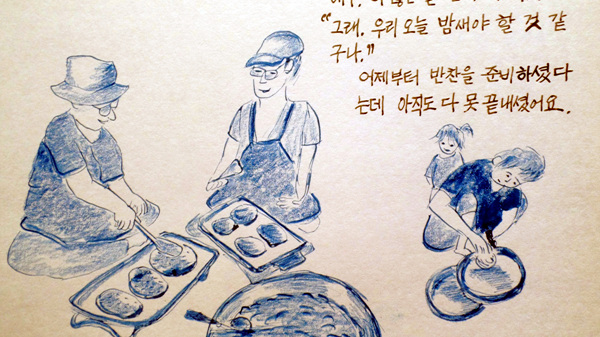 "그래. 우리 오늘 밤새야 할 것 같
구나."
어제부터 반찬을 준비하셨다
는데 아직도 다 못 끝내셨어요.